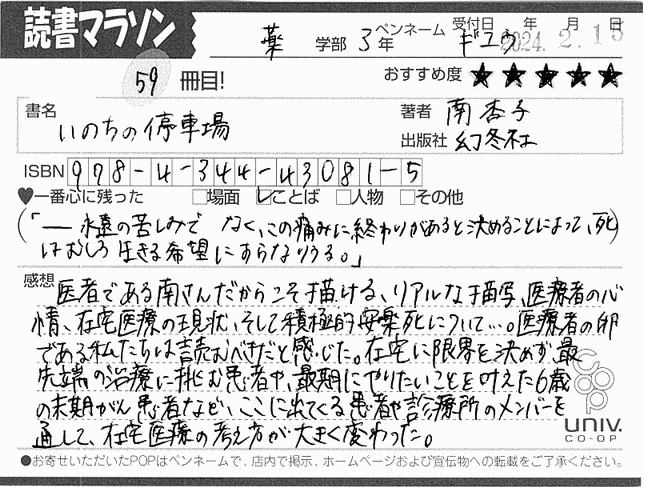 読書マラソン
薬 学部 3年 ペンネーム ギュウ 受付日 年 月 日
2024.2.15
59 冊目! おすすめ度 ★★★★★
書名 いのちの停車場
著者 南杏子
出版社 幻冬社
ISBN 978-4-344-43081-5
♥一番心に残った □場面 ☑ことば □人物 □その他
(「―永遠の苦しみで なく、この痛みに終わりがあると決めることによって、死
はむしろ 生きる希望 にすらなりうる。」)
感想 医者である南さんだからこそ描ける、リアルな描写、医療者の心
情、在宅医療の現状、そして積極的安楽死について…。医療者の卵
である私たちは読むべきだと感じた。在宅に限界を決めず、最
先端の治療に挑む患者や、最期にやりたいことを叶えた6歳
の末期がん患者など、ここに出てくる患者や診療所のメンバーを
通して、在宅医療の考え方が大きく変わった。
coop
UNIV.
CO-OP
●お寄せいただいたPOPはペンネームで、店内で掲示、ホームページおよび宣伝物への転載をご了承ください。